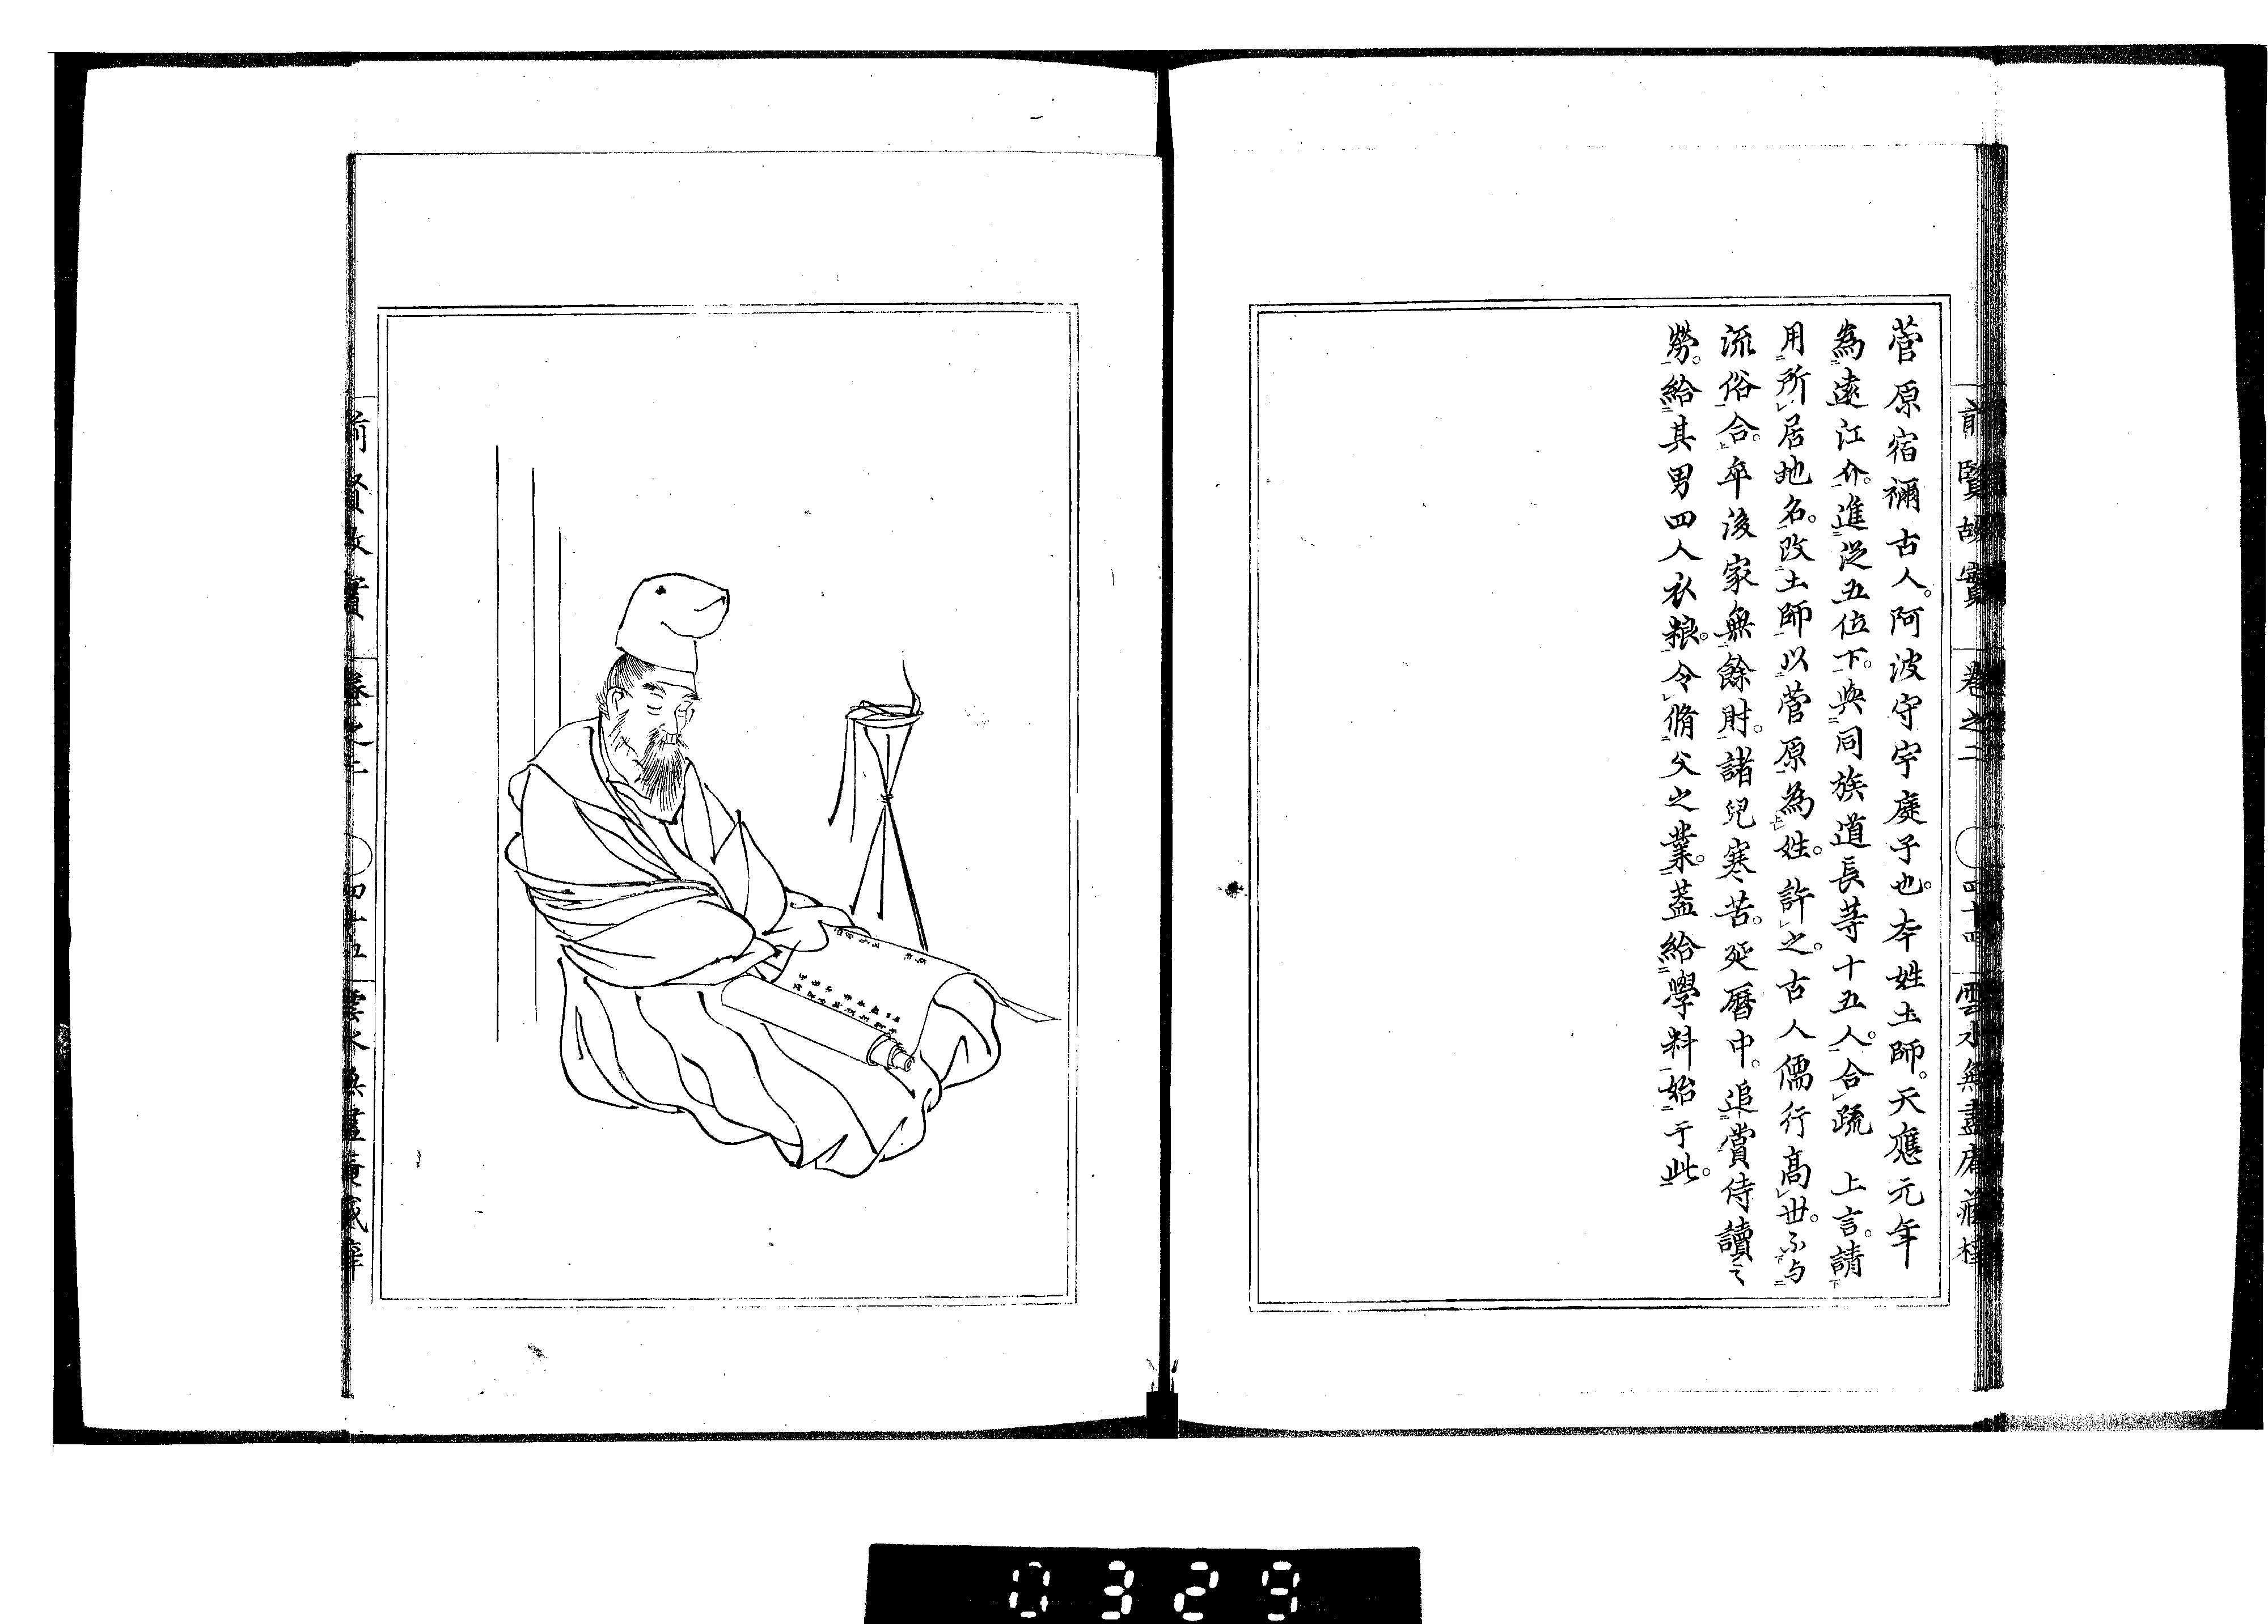 前賢故實 卷之二 四十四 雲水無盡庵藏
菅原宿禰古人。阿波守宇庭子也。本姓土師。天應元年
為遠江介。進從五位下。與同族道長等十五人。合疏 上言。請
用所居地名。改土師以菅原為姓。許之。古人儒行高世。不与
流俗合。卒後家無餘財。諸兒寒苦。延曆中。追賞侍讀之
勞。給其男四人衣粮。令脩父之業。蓋給學料始于此。
前賢故實 卷之二 四十五
0329